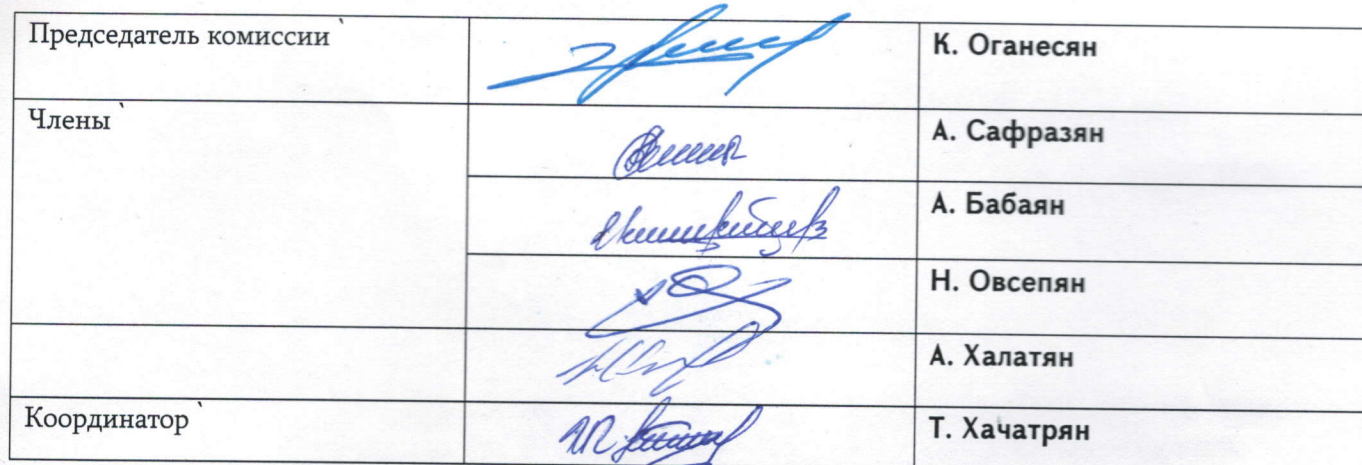 Председатель комиссии՝ К. Оганесян
Члены՝ А. Сафразян
А. Бабаян
Н. Овсепян
А. Халатян
Координатор՝ Т. Хачатрян